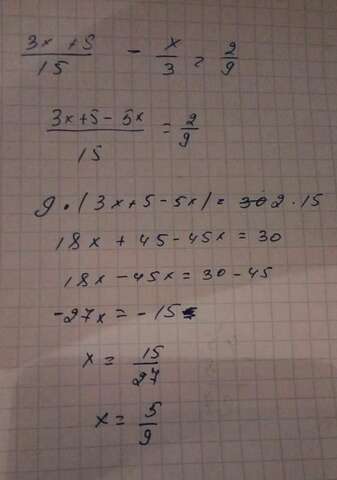 (3x + 5)/15 - x/3 = 2/9
(3x + 5 - 5x)/15 = 2/9
9 · (3x + 5 - 5x) = 2 · 15
18x + 45 - 45x = 30
18x - 45x = 30 - 45
-27x = -15
x = 15/27
x = 5/9